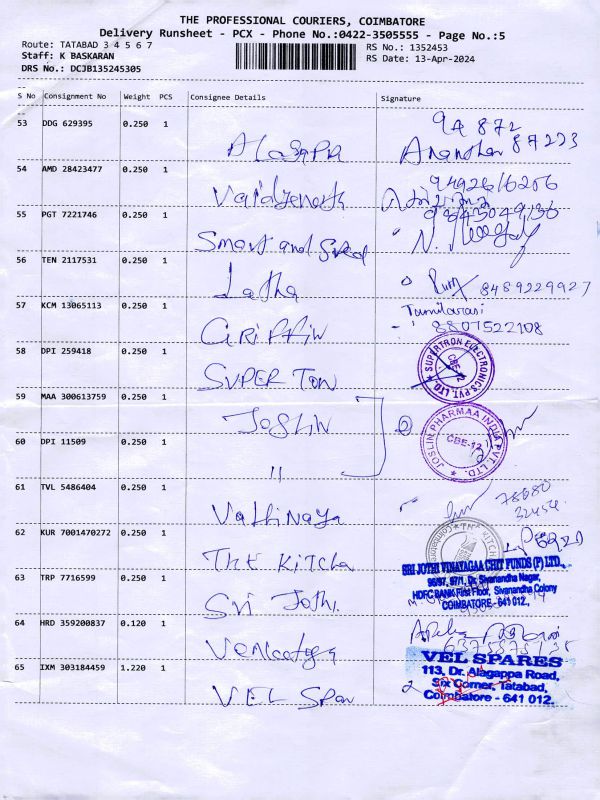 THE PROFESSIONAL COURIERS, COIMBATORE
Delivery Runsheet - PCX - Phone No.:0422-3505555 - Page No.:5
Route: TATABAD 3 4 5 6 7
RS No.: 1352453
Staff: K BASKARAN
RS Date: 13-Apr-2024
DRS No.: DCJB135245305
S No Consignment No Weight PCS Consignee Details Signature
94 872
53 DDG 629395 0.250 1 Alagappa 87223
54 AMD 28423477 0.250 1 Vaidyanath
55 PGT 7221746 0.250 1 Smart and
56 TEN 2117531 0.250 1 Latha 8489229927
57 KCM 13065113 0.250 1 Griffin Tamilarasi
8807522108
58 DPI 259418 0.250 1 SUPER TON
SUPERTRON ELECTRONICS PVT. LTD. CBE-12
59 MAA 300613759 0.250 1 JOSLIN
JOSLIN PHARMAA INDIA PVT. LTD. CBE-12
60 DPI 11509 0.250 1 "
61 TVL 5486404 0.250 1 Vathinaya
62 KUR 7001470272 0.250 1 THE KITCHA
63 TRP 7716599 0.250 1 Sri Jothi
SRI JOTHI VINAYAGAA CHIT FUNDS (P) LTD.,
96/97, 97/1, Dr. Sivanandha Nagar,
HDFC BANK First Floor, Sivanandha Colony
COIMBATORE - 641 012.
64 HRD 359200837 0.120 1
65 IXM 303184459 1.220 1 VEL Spar
VEL SPARES
113, Dr. Alagappa Road,
Six Corner, Tatabad,
Coimbatore - 641 012.